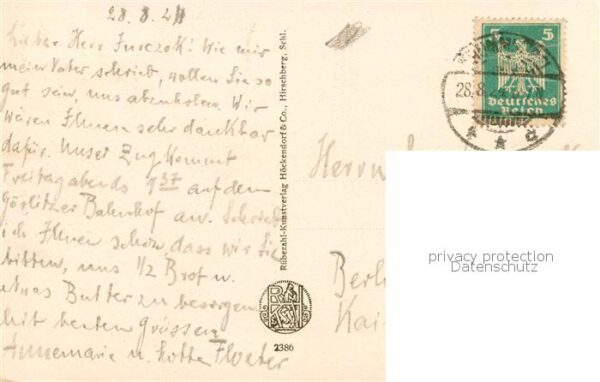 28. 8. 24
Lieber Herr Jurczok! Wie mir
mein Vater schrieb, wollen Sie so
gut sein, uns abzuholen. Wir
wären Ihnen sehr dankbar
dafür. Unser Zug kommt
Freitagabends 9 37 auf dem
Görlitzer Bahnhof an. Schrieb
ich Ihnen schon, dass wir Sie
bitten, uns 1/2 Brot u.
etwas Butter zu besorgen
Mit besten Grüssen
Annemarie u. Lotte Floeter
Rübezahl-Kunstverlag Höckendorf & Co., Hirschberg, Schl.
2386
5 5
Deutsches
Reich
28.8.
Herrn
Berli
Kai
privacy protection
Datenschutz